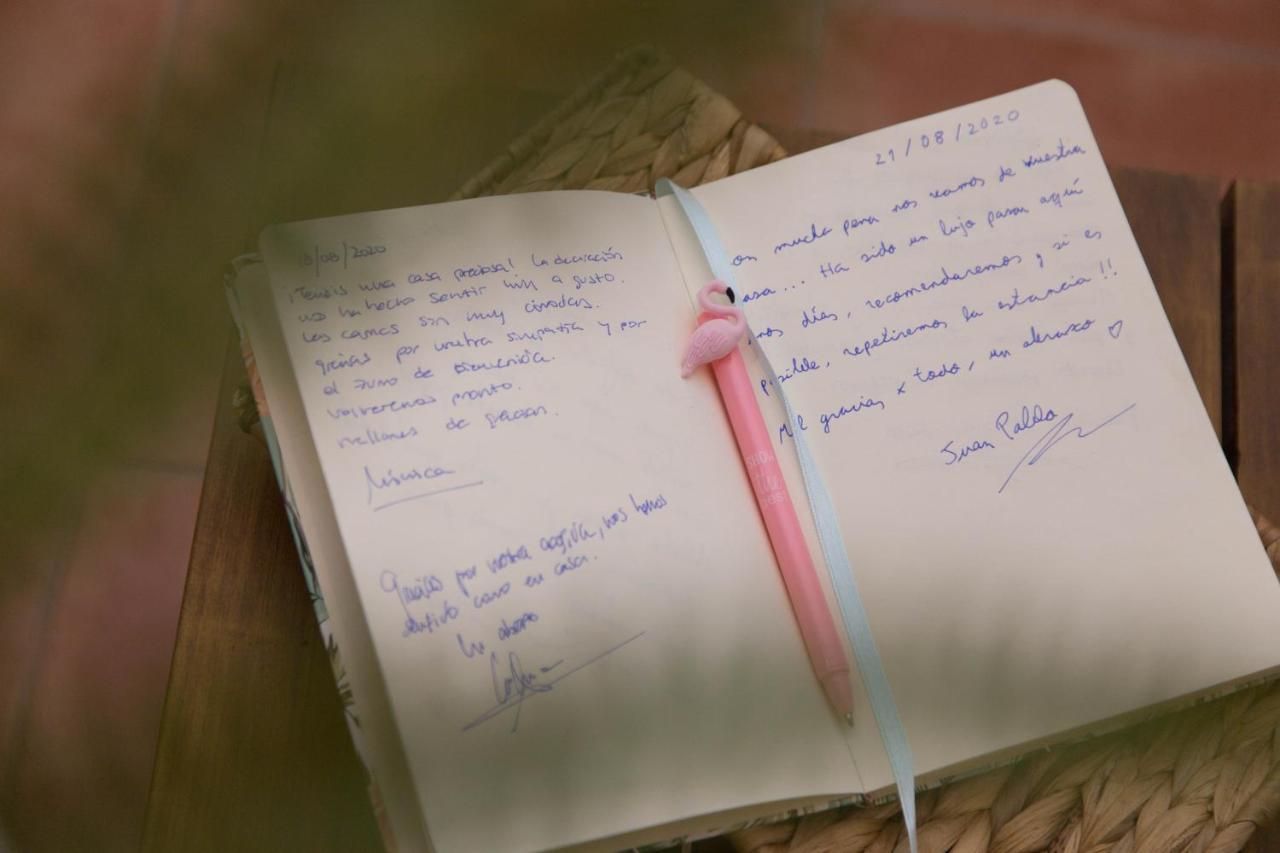 18/08/2020
¡Tenéis una casa preciosa! La decoración
nos ha hecho sentir muy a gusto.
Las camas son muy cómodas.
Gracias por vuestra simpatía y por
el zumo de bienvenida.
Volveremos pronto.
Millones de gracias.
Mónica
Gracias por vuestra acogida, nos hemos
sentido como en casa.
Un abrazo
21/08/2020
on mucha pena nos vamos de vuestra
asa... Ha sido un lujo pasar aquí
nos días, recomendaremos y si es
posible, repetiremos la estancia!!
Mil gracias x todo, un abrazo ♡
Juan Pablo